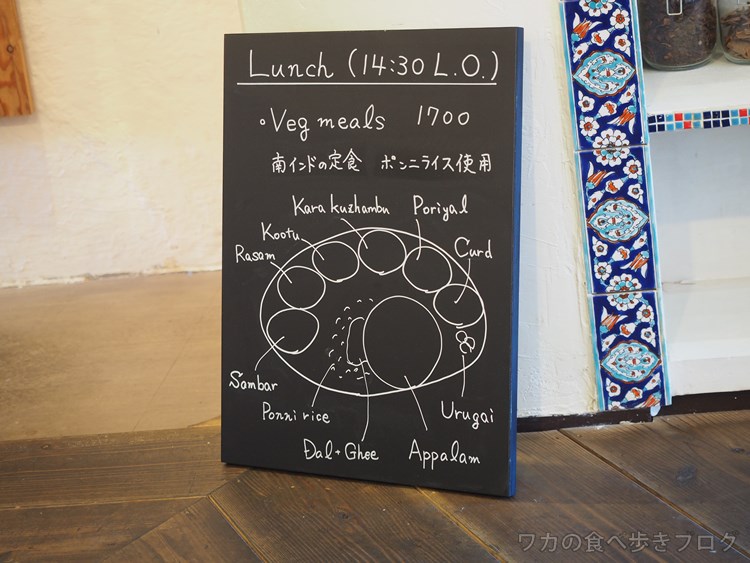 Lunch (14:30 L.O.)
Veg meals 1700
南インドの定食 ポンニライス使用
Kara kuzhambu Poriyal
Kootu
Curd
Rasam
Sambar
Ponni rice
Urugai
Dal + Ghee
Appalam
ワカの食べ歩きブログ